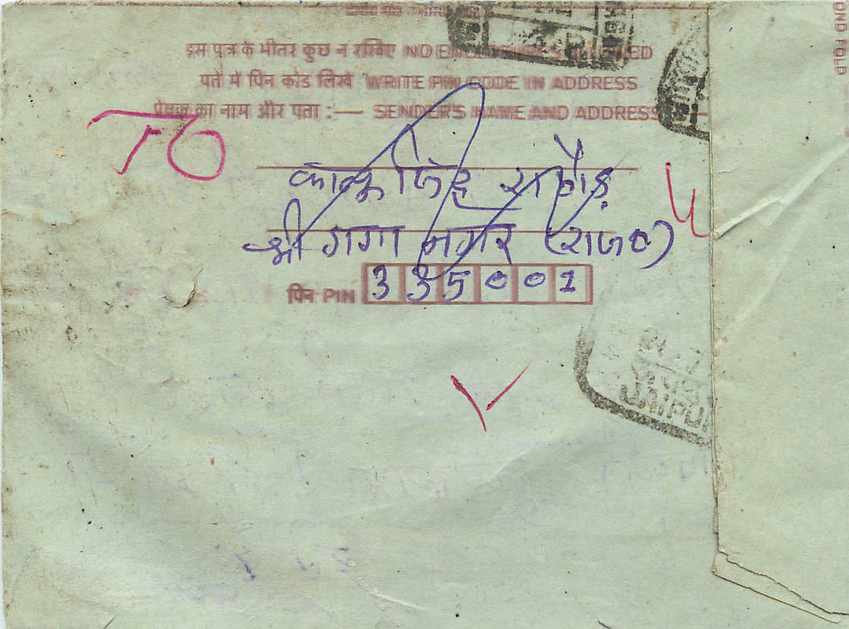 इस पत्र के भीतर कुछ न रखिए NO ENCLOSURES ALLOWED
पते में पिन कोड लिखें WRITE PIN CODE IN ADDRESS
प्रेषक का नाम और पता :— SENDER'S NAME AND ADDRESS
TO
कालू सिंह राठौड़
श्री गंगा नगर (राज०)
पिन PIN 335001
JAIPUR
OND FOLD